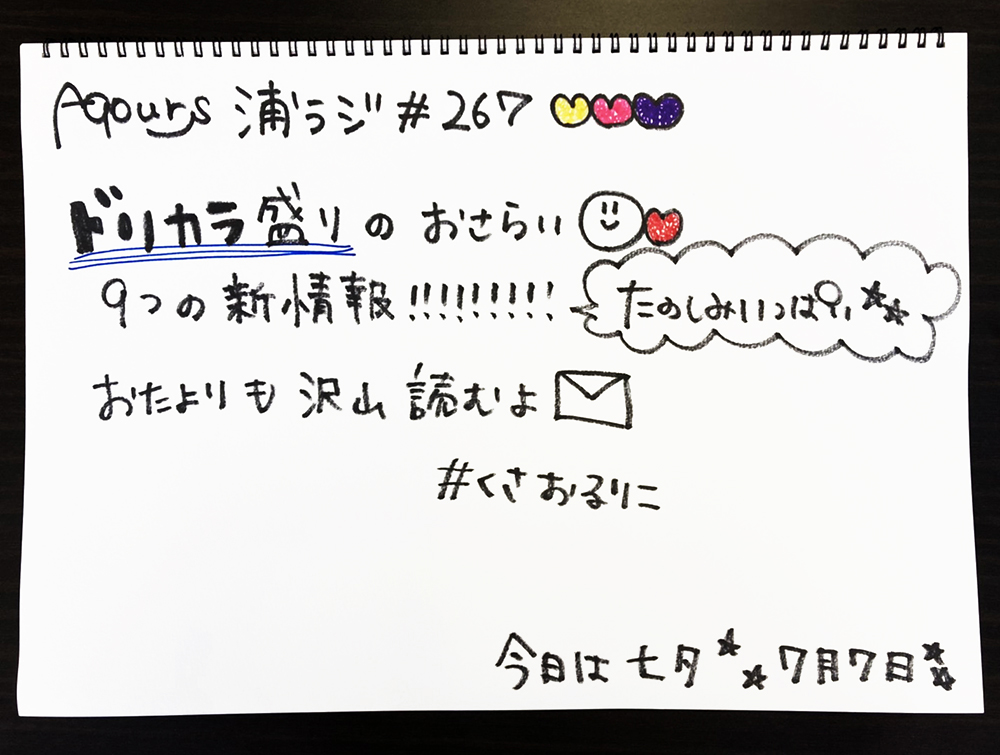 Aqours 浦ラジ #267
ドリカラ盛りの おさらい
9つの新情報!!!!!!!!!
たのしみいっぱい
おたよりも 沢山 読むよ
#くさおるりこ
今日は 七夕 7月7日